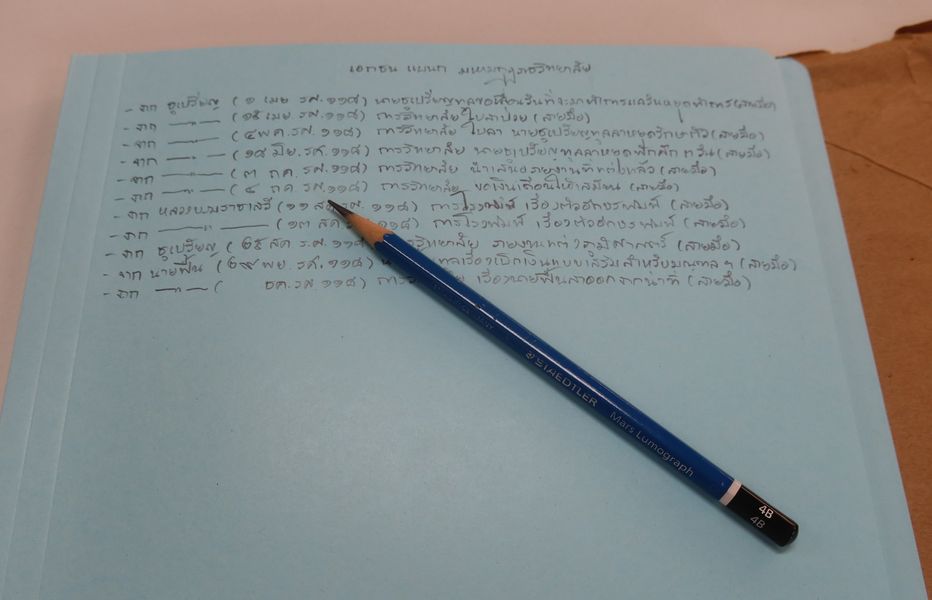 เอกชน แผนก มหามกุฎราชวิทยาลัย
- จาก ชูเปรียญ (๑ เมย ร.ศ. ๑๑๘) นายชูเปรียญทูลขอเลื่อนวันที่จะมาทำการแลวันหยุดทำการ (ลายมือ)
- จาก —"— (๑๕ เมย. ร.ศ. ๑๑๘) การวิทยาลัย ใบลาป่วย (ลายมือ)
- จาก —"— (๔ พ.ค. ร.ศ. ๑๑๘) การวิทยาลัย ใบลา นายชูเปรียญทูลลาหยุดรักษาตัว (ลายมือ)
- จาก —"— (๑๘ มิย. ร.ศ. ๑๑๘) การวิทยาลัย นายชูเปรียญทูลลาหยุดพักศึก ๓ วัน (ลายมือ)
- จาก —"— (๓ กค. ร.ศ. ๑๑๘) การวิทยาลัย นำเสนอรายงานที่แต่งแล้ว (ลายมือ)
- จาก —"— (๔ กค. ร.ศ. ๑๑๘) การวิทยาลัย ขอเงินเดือนให้เสมียน (ลายมือ)
- จาก หลวง (๑๑ ๑๑๘) การโรงพิมพ์ เรื่องตัวอักษรพิมพ์ (ลายมือ)
- จาก —"— (๑๓ สค ๑๑๘) การโรงพิมพ์ เรื่องตัวอักษรพิมพ์ (ลายมือ)
- จาก ชูเปรียญ (๒๕ สค ร.ศ. ๑๑๘ รายงานแต่งภูมิศาสตร์ (ลายมือ)
- จาก นายฟื้น (๒๙ พย. ร.ศ. ๑๑๘) เรื่องเบิกเงินแบบเรียนสำหรับมณฑลฯ (ลายมือ)
- จาก —"— ( ธค. ร.ศ. ๑๑๘) เรื่องนายฟื้นลาออกจากน่าที่ (ลายมือ)
STAEDTLER Mars Lumograph
4B
4B